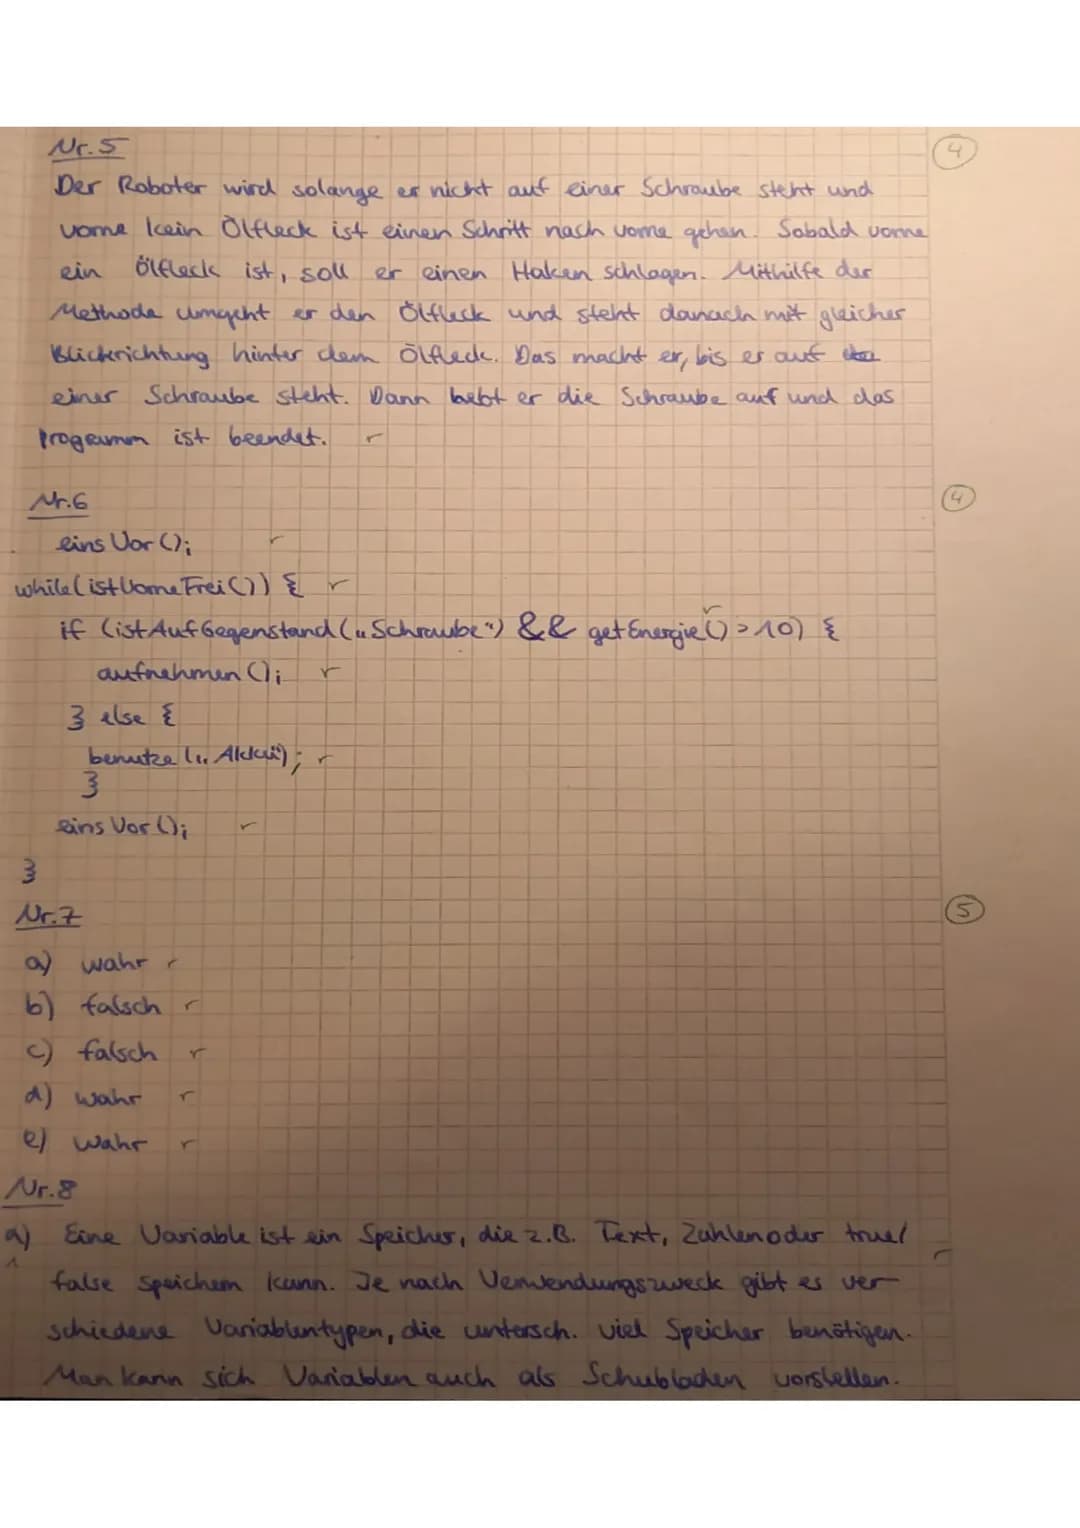 Nr. 5
4
Der Roboter wird solange er nicht auf einer Schraube steht und
vorne kein Ölfleck ist einen Schritt nach vorne gehen. Sobald vorne
ein Ölfleck ist, soll er einen Haken schlagen. Mithilfe der
Methode umgeht er den Ölfleck und steht danach mit gleicher
Blickrichtung hinter dem Ölfleck. Das macht er, bis er auf
einer Schraube steht. Dann hebt er die Schraube auf und das
Programm ist beendet.
Nr. 6
4
einsVor();
while(istVorneFrei()) {
if (istAufGegenstand(„Schraube“) && getEnergie() > 10) {
aufnehmen();
} else {
benutze(„Akku“);
}
einsVor();
}
Nr. 7
5
a) wahr
b) falsch
c) falsch
d) wahr
e) wahr
Nr. 8
a) Eine Variable ist ein Speicher, die z.B. Text, Zahlen oder true/
1
false speichern kann. Je nach Verwendungszweck gibt es ver-
schiedene Variablentypen, die untersch. viel Speicher benötigen.
Man kann sich Variablen auch als Schubladen vorstellen.